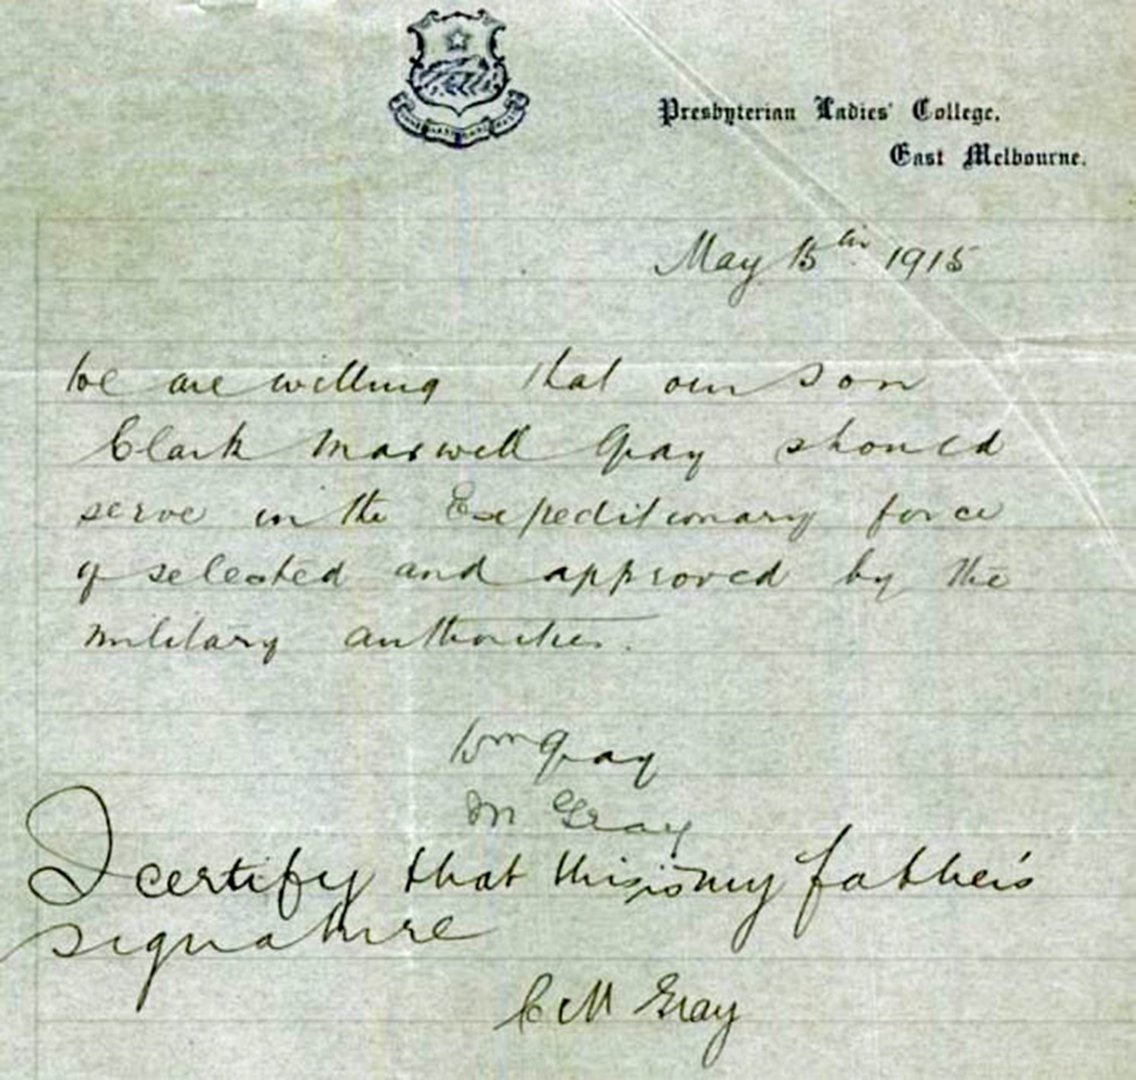 Presbyterian Ladies' College,
East Melbourne.
May 15th 1915
We are willing that our son
Clark Maxwell Gray should
serve in the Expeditionary force
if selected and approved by the
military authorities.
Wm Gray
M Gray
I certify that this is my father's
signature
C M Gray